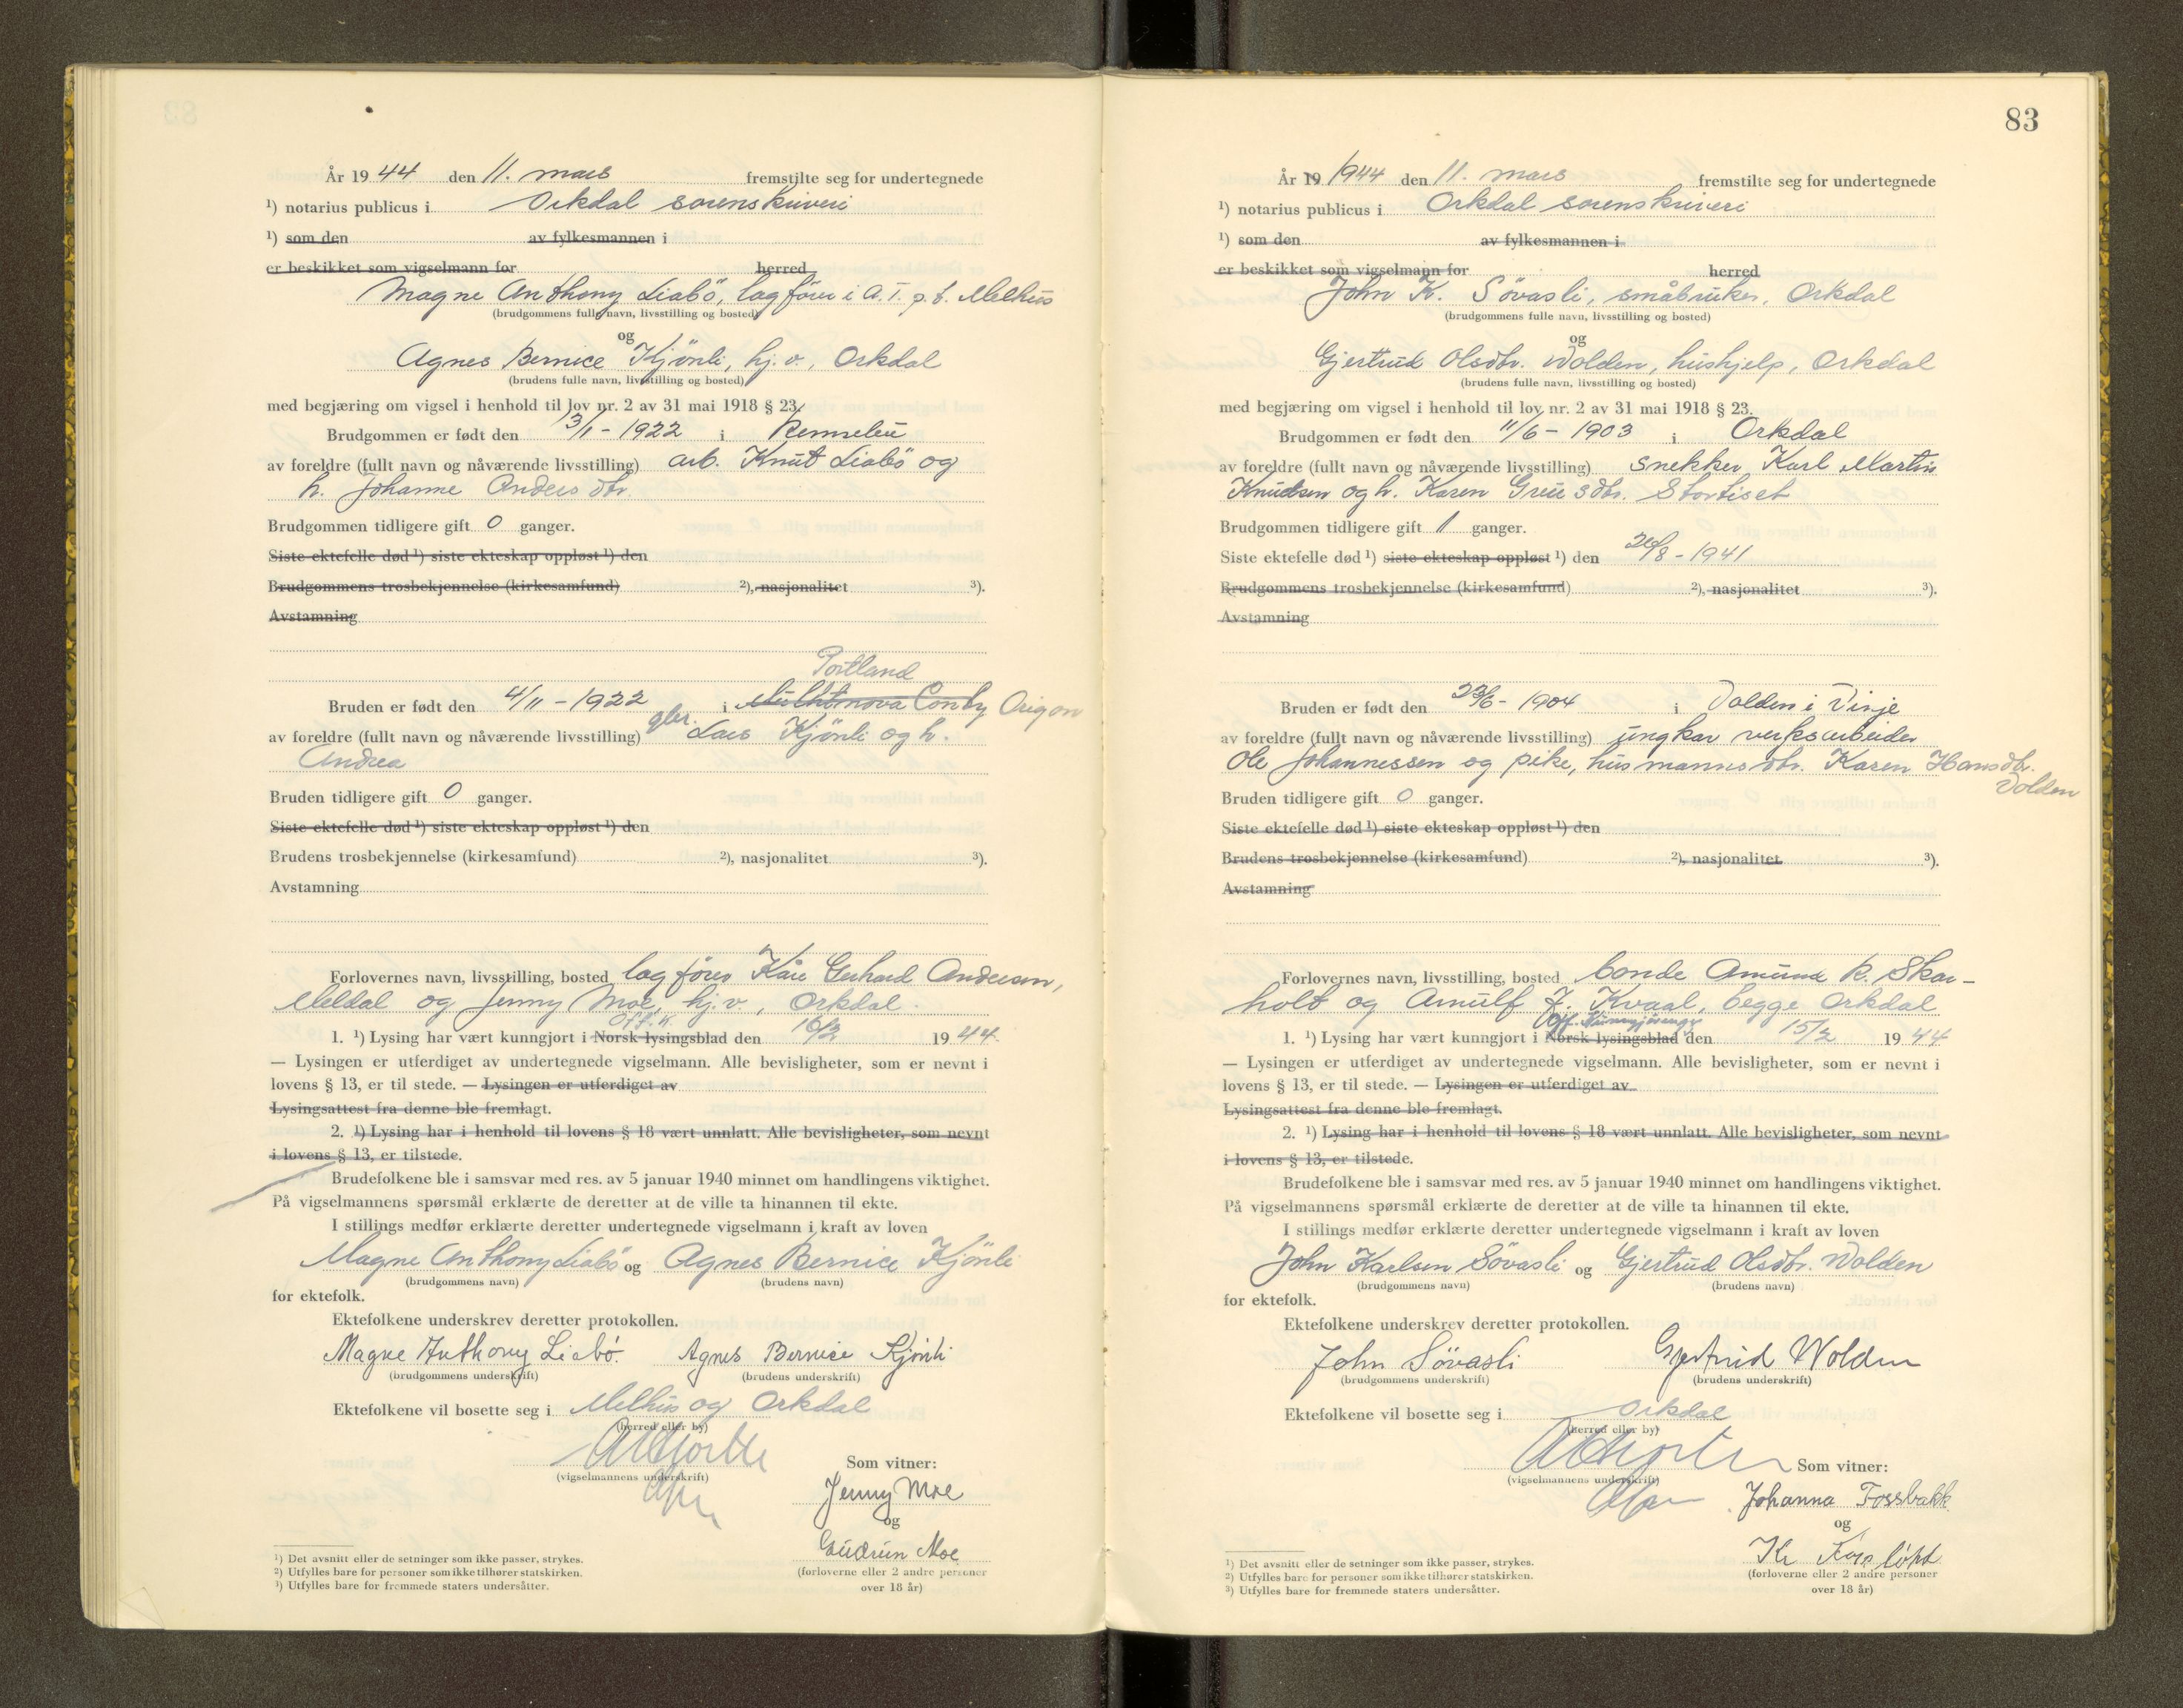 År 1944 den 11. mars fremstilte seg for undertegnede
¹) notarius publicus i Orkdal sorenskriveri
¹) som den av fylkesmannen i
er beskikket som vigselmann for herred
Magne Anthony Liabö, lagförer i A.T. p.t. Melhus
(brudgommens fulle navn, livsstilling og bosted)
og
Agnes Bernice Kjönli, hj.v., Orkdal
(brudens fulle navn, livsstilling og bosted)
med begjæring om vigsel i henhold til lov nr. 2 av 31 mai 1918 § 23.
Brudgommen er født den 13/1 - 1922 i Rennebu
av foreldre (fullt navn og nåværende livsstilling) arb. Knut Liabö og
h. Johanne Andersdtr.
Brudgommen tidligere gift 0 ganger.
Siste ektefelle død ¹) siste ekteskap oppløst ¹) den
Brudgommens trosbekjennelse (kirkesamfund) ²), nasjonalitet ³).
Avstamning
Portland
Bruden er født den 4/11 - 1922 i Conby Origon
av foreldre (fullt navn og nåværende livsstilling) gbr. Lars Kjönli og h.
Andrea
Bruden tidligere gift 0 ganger.
Siste ektefelle død ¹) siste ekteskap oppløst ¹) den
Brudens trosbekjennelse (kirkesamfund) ²), nasjonalitet ³).
Avstamning
Forlovernes navn, livsstilling, bosted lagförer Kåre Gerhard Andersen,
Meldal og Jenny Moe, hj.v., Orkdal.
Off. k.
1. ¹) Lysing har vært kunngjort i Norsk lysingsblad den 16/2 1944.
— Lysingen er utferdiget av undertegnede vigselmann. Alle bevisligheter, som er nevnt i
lovens § 13, er til stede. — Lysingen er utferdiget av
Lysingsattest fra denne ble fremlagt.
2. ¹) Lysing har i henhold til lovens § 18 vært unnlatt. Alle bevisligheter, som nevnt
i lovens § 13, er tilstede.
Brudefolkene ble i samsvar med res. av 5 januar 1940 minnet om handlingens viktighet.
På vigselmannens spørsmål erklærte de deretter at de ville ta hinannen til ekte.
I stillings medfør erklærte deretter undertegnede vigselmann i kraft av loven
Magne Anthony Liabö og Agnes Bernice Kjönli
(brudgommens navn) (brudens navn)
for ektefolk.
Ektefolkene underskrev deretter protokollen.
Magne Anthony Liabö. Agnes Bernice Kjönli
(brudgommens underskrift) (brudens underskrift)
Ektefolkene vil bosette seg i Melhus og Orkdal
(herred eller by)
(vigselmannens underskrift)
Som vitner:
Jenny Moe
og
Gudrun Moe
(forloverne eller 2 andre personer
over 18 år)
¹) Det avsnitt eller de setninger som ikke passer, strykes.
²) Utfylles bare for personer som ikke tilhører statskirken.
³) Utfylles bare for fremmede staters undersåtter.
83
År 19 1944 den 11. mars fremstilte seg for undertegnede
¹) notarius publicus i Orkdal sorenskriveri
¹) som den av fylkesmannen i
er beskikket som vigselmann for herred
John K. Sövasli, småbruker, Orkdal
(brudgommens fulle navn, livsstilling og bosted)
og
Gjertrud Olsdtr. Wolden, hushjelp, Orkdal
(brudens fulle navn, livsstilling og bosted)
med begjæring om vigsel i henhold til lov nr. 2 av 31 mai 1918 § 23.
Brudgommen er født den 11/6 - 1903 i Orkdal
av foreldre (fullt navn og nåværende livsstilling) snekker Karl Martin
Knudsen og h. Karen Storliset
Brudgommen tidligere gift 1 ganger.
Siste ektefelle død ¹) siste ekteskap oppløst ¹) den 26/8 - 1941
Brudgommens trosbekjennelse (kirkesamfund) ²), nasjonalitet ³).
Avstamning
Bruden er født den 23/6 - 1904 i Volden i Vinje
av foreldre (fullt navn og nåværende livsstilling) ungkar verksarbeider
Ole Johannessen og pike, husmannsdtr. Karen Hansdtr.
Volden
Bruden tidligere gift 0 ganger.
Siste ektefelle død ¹) siste ekteskap oppløst ¹) den
Brudens trosbekjennelse (kirkesamfund) ²), nasjonalitet ³).
Avstamning
Forlovernes navn, livsstilling, bosted bonde Amund K. Skar-
holt og Arnulf J. Kvaal, begge Orkdal
Off. Kunngjøringer
1. ¹) Lysing har vært kunngjort i Norsk lysingsblad den 15/2 1944
— Lysingen er utferdiget av undertegnede vigselmann. Alle bevisligheter, som er nevnt i
lovens § 13, er til stede. — Lysingen er utferdiget av
Lysingsattest fra denne ble fremlagt.
2. ¹) Lysing har i henhold til lovens § 18 vært unnlatt. Alle bevisligheter, som nevnt
i lovens § 13, er tilstede.
Brudefolkene ble i samsvar med res. av 5 januar 1940 minnet om handlingens viktighet.
På vigselmannens spørsmål erklærte de deretter at de ville ta hinannen til ekte.
I stillings medfør erklærte deretter undertegnede vigselmann i kraft av loven
John Karlsen Sövasli og Gjertrud Olsdtr. Wolden
(brudgommens navn) (brudens navn)
for ektefolk.
Ektefolkene underskrev deretter protokollen.
John Sövasli Gjertrud Wolden
(brudgommens underskrift) (brudens underskrift)
Ektefolkene vil bosette seg i Orkdal
(herred eller by)
(vigselmannens underskrift)
Som vitner:
Johanna Fossbakk
og
Kr
(forloverne eller 2 andre personer
over 18 år)
¹) Det avsnitt eller de setninger som ikke passer, strykes.
²) Utfylles bare for personer som ikke tilhører statskirken.
³) Utfylles bare for fremmede staters undersåtter.